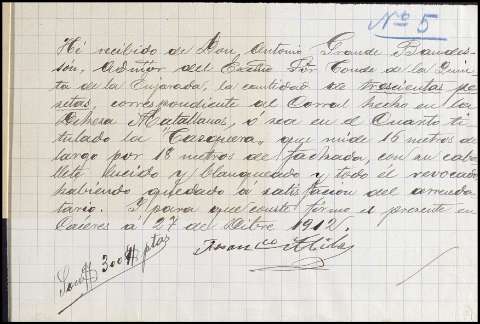 Nº 5
Hé recibido de Don, Antonio Grande Baudes-
són, Admor del Exctmo Sor Conde de la Quin
ta de la Enjarada, la cantidad de trescientas pe
setas, correspondiente al Corral hecho en la
Dehesa Matallana, ó sea en el Cuarto ti
tulado la "Casquera", que mide 16 metros de
largo por 18 metros de fachada, con su caba
llete lucido y blanqueado y todo el revocado
habiendo quedado á satisfacion del arrenda
tario. Y para que conste firmo el presente en
Cáceres á 27 de Obtre 1912.
Son 300 ptas
Franco